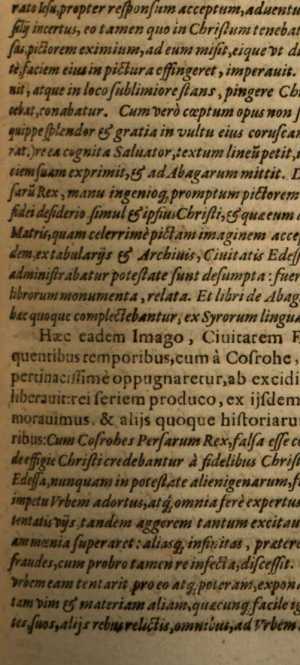 rato Iesu, propter responsum acceptum, aduentu
filij incertus, eo tamen quo in Christum tenebat
sus, pictorem eximium, ad eum misit, eique vt di
tè, faciem eius in pictura effingeret, imperauit.
nit, atque in loco sublimiore stans, pingere Chr
cebat, conabatur. Cum verò cœptum opus non
quippe splendor & gratia in vultu eius corusca
rat,) re ea cognita Saluator, textum lineū petit,
ciem suam exprimit, & ad Abagarum mittit.
sarū Rex, manu ingenioq, promptum pictorem
fidei desiderio simul & ipsius Christi, & quæ eum
Matris, quam celerrimè pictam imaginem accep
dem, ex tabularijs & Archiuis, Ciuitatis Edess
administrabatur potestate sunt desumpta: fuer
librorum monumenta, relata. Et libri de Abag
hæc quoque complectebantur, ex Syrorum lingua
Hæc eadem Imago, Ciuitarem E
quentibus temporibus, cum à Cosrohe,
pertinacissimè oppugnaretur, ab excidi
liberauit: rei seriem produco, ex ijsdem
morauimus. & alijs quoque historiaru
ribus: Cum Cosrohes Persarum Rex, falsa esse c
de effigie Christi credebantur à fidelibus Christ
Edessa, nunquam in potestate alienigenarum, f
impetu Vrbem adortus, atq, omnia ferè expertus
tentatis vijs, tandem aggerem tantum excitau
am mœnia superaret: aliasq, infinitas, præter
fraudes, cum probro tamen re infecta, discessit.
vrbem eam tentarit pro eo atq, poteram, expon
tam vim & materiam aliam, quæcunq, facile ig
tes, suos, alijs rebus relictis, omnibus, ad Vrbem